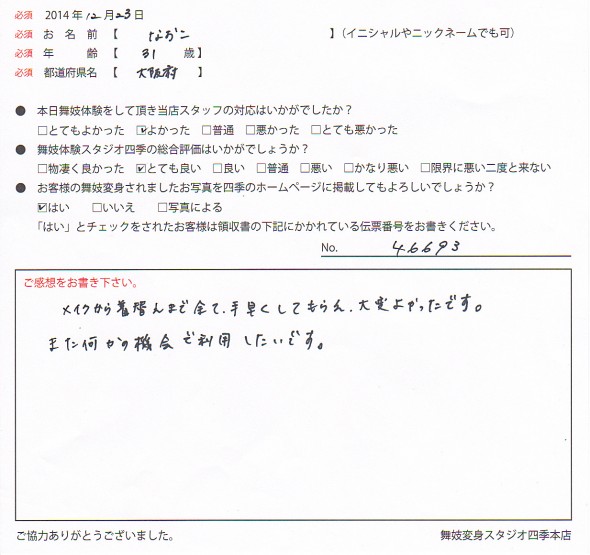 必須 2014年12月23日
必須 お名前【 なおこ 】(イニシャルやニックネームでも可)
必須 年齢【 31 歳】
必須 都道府県名【 大阪府 】
● 本日舞妓体験をして頂き当店スタッフの対応はいかがでしたか？
□とてもよかった ☑よかった □普通 □悪かった □とても悪かった
● 舞妓体験スタジオ四季の総合評価はいかがでしょうか？
□物凄く良かった ☑とても良い □良い □普通 □悪い □かなり悪い □限界に悪い二度と来ない
● お客様の舞妓変身されましたお写真を四季のホームページに掲載してもよろしいでしょうか？
☑はい □いいえ □写真による
「はい」とチェックをされたお客様は領収書の下記にかかれている伝票番号をお書きください。
No. 46693
ご感想をお書き下さい。
メイクから着替えまで全て、手早くしてもらえ、大変よかったです。
また何かの機会で利用したいです。
ご協力ありがとうございました。 舞妓変身スタジオ四季本店